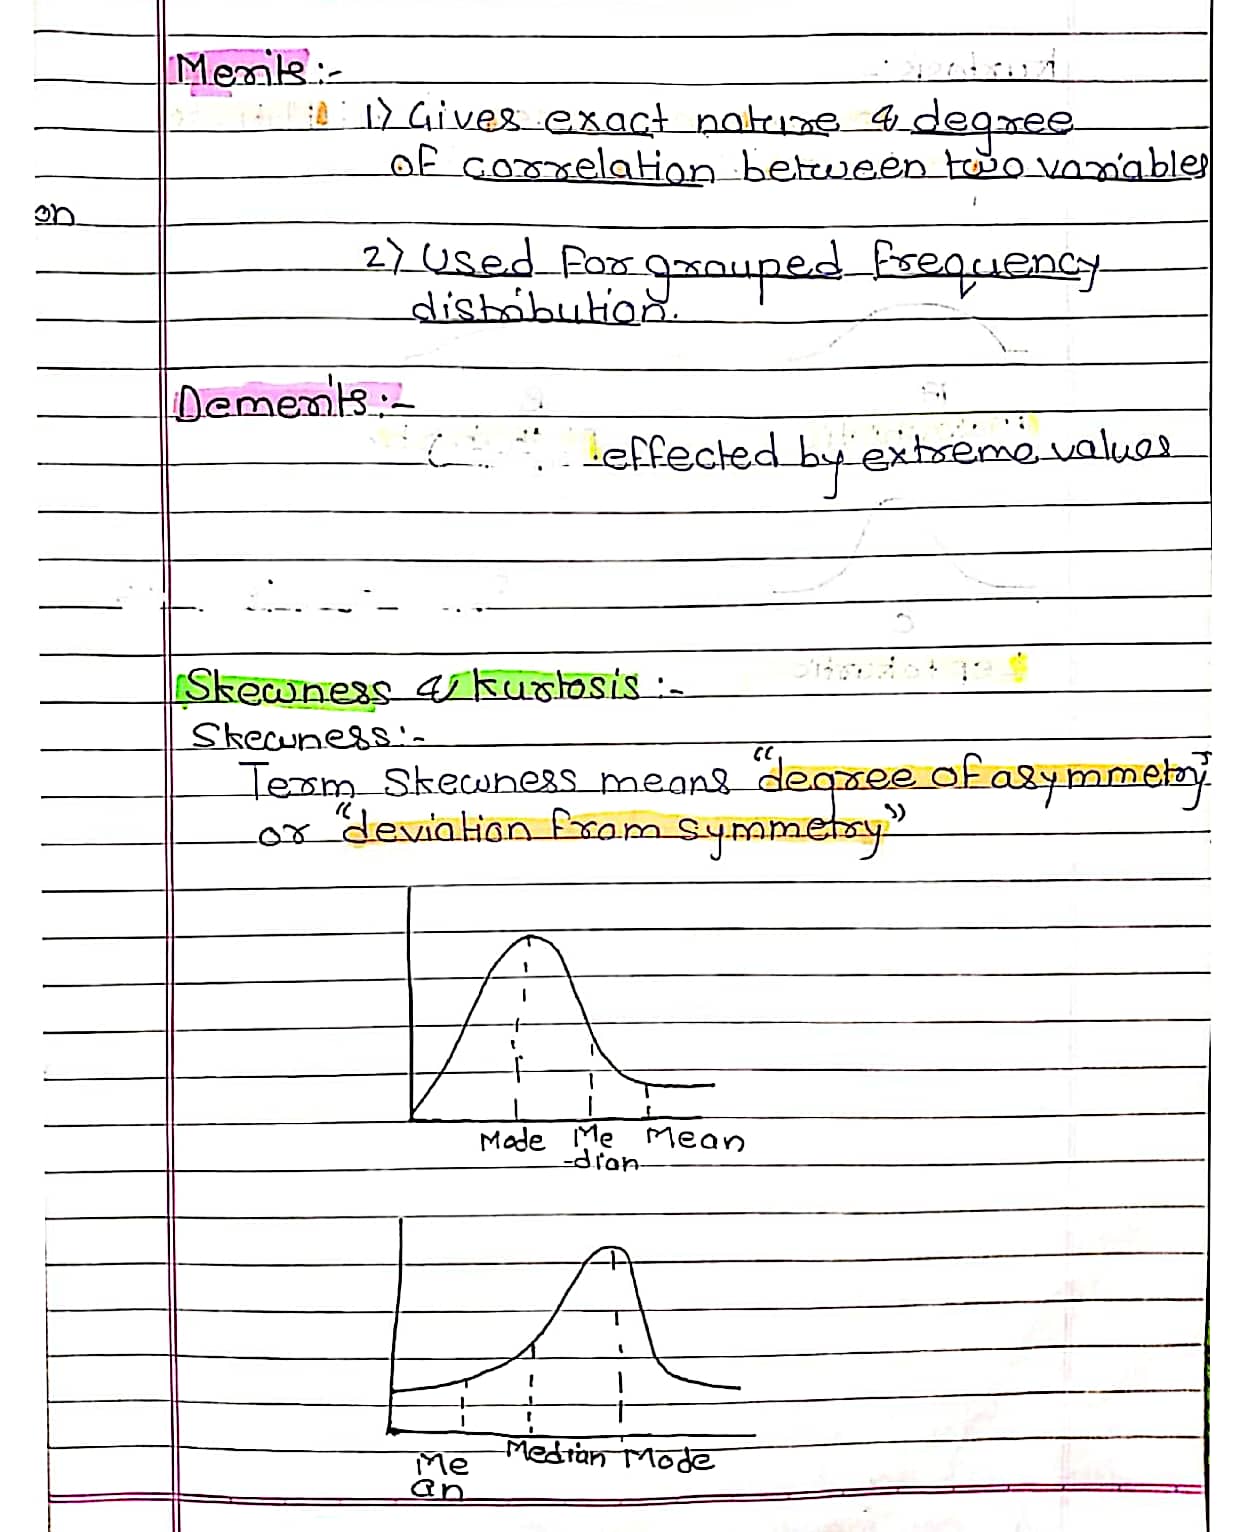 Merits :-
1) Gives exact nature & degree
of correlation between two variables
on
2) Used for grouped frequency
distribution.
Demerits :-
effected by extreme values
Skewness & kurtosis :-
Skewness :-
Term Skewness means "degree of asymmetry"
or "deviation from symmetry"
Mode Me Mean
-dian
Median Mode
Me
an